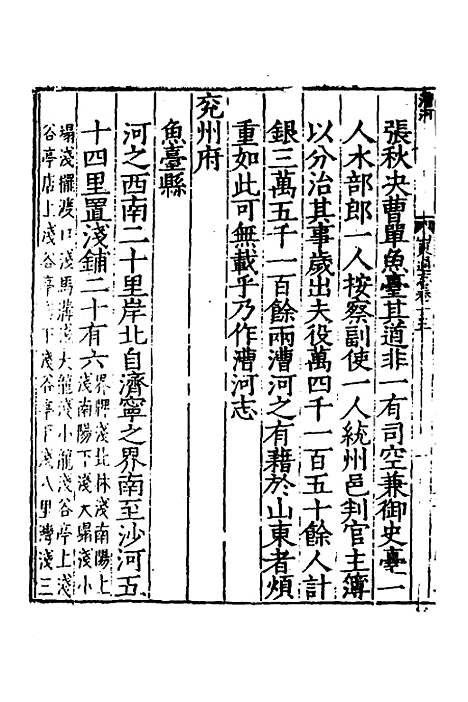 張秋決曹單魚臺其道非一有司空兼御史臺一
人水部郎一人按察副使一人統州邑判官主簿
以分治其事歲出夫役萬四千一百五十餘人計
銀三萬五千一百餘兩漕河之有藉於山東者煩
重如此可無載乎乃作漕河志
兗州府
魚臺縣
河之西南二十里岸北自濟寧之界南至沙河五
十四里置淺鋪二十有六界牌淺北林淺南陽上
淺南陽下淺大塌淺小
塌淺擺渡口淺馬溝淺大龍淺小龍淺谷亭上淺
谷亭店上淺谷亭下淺谷亭下淺八里灣淺三